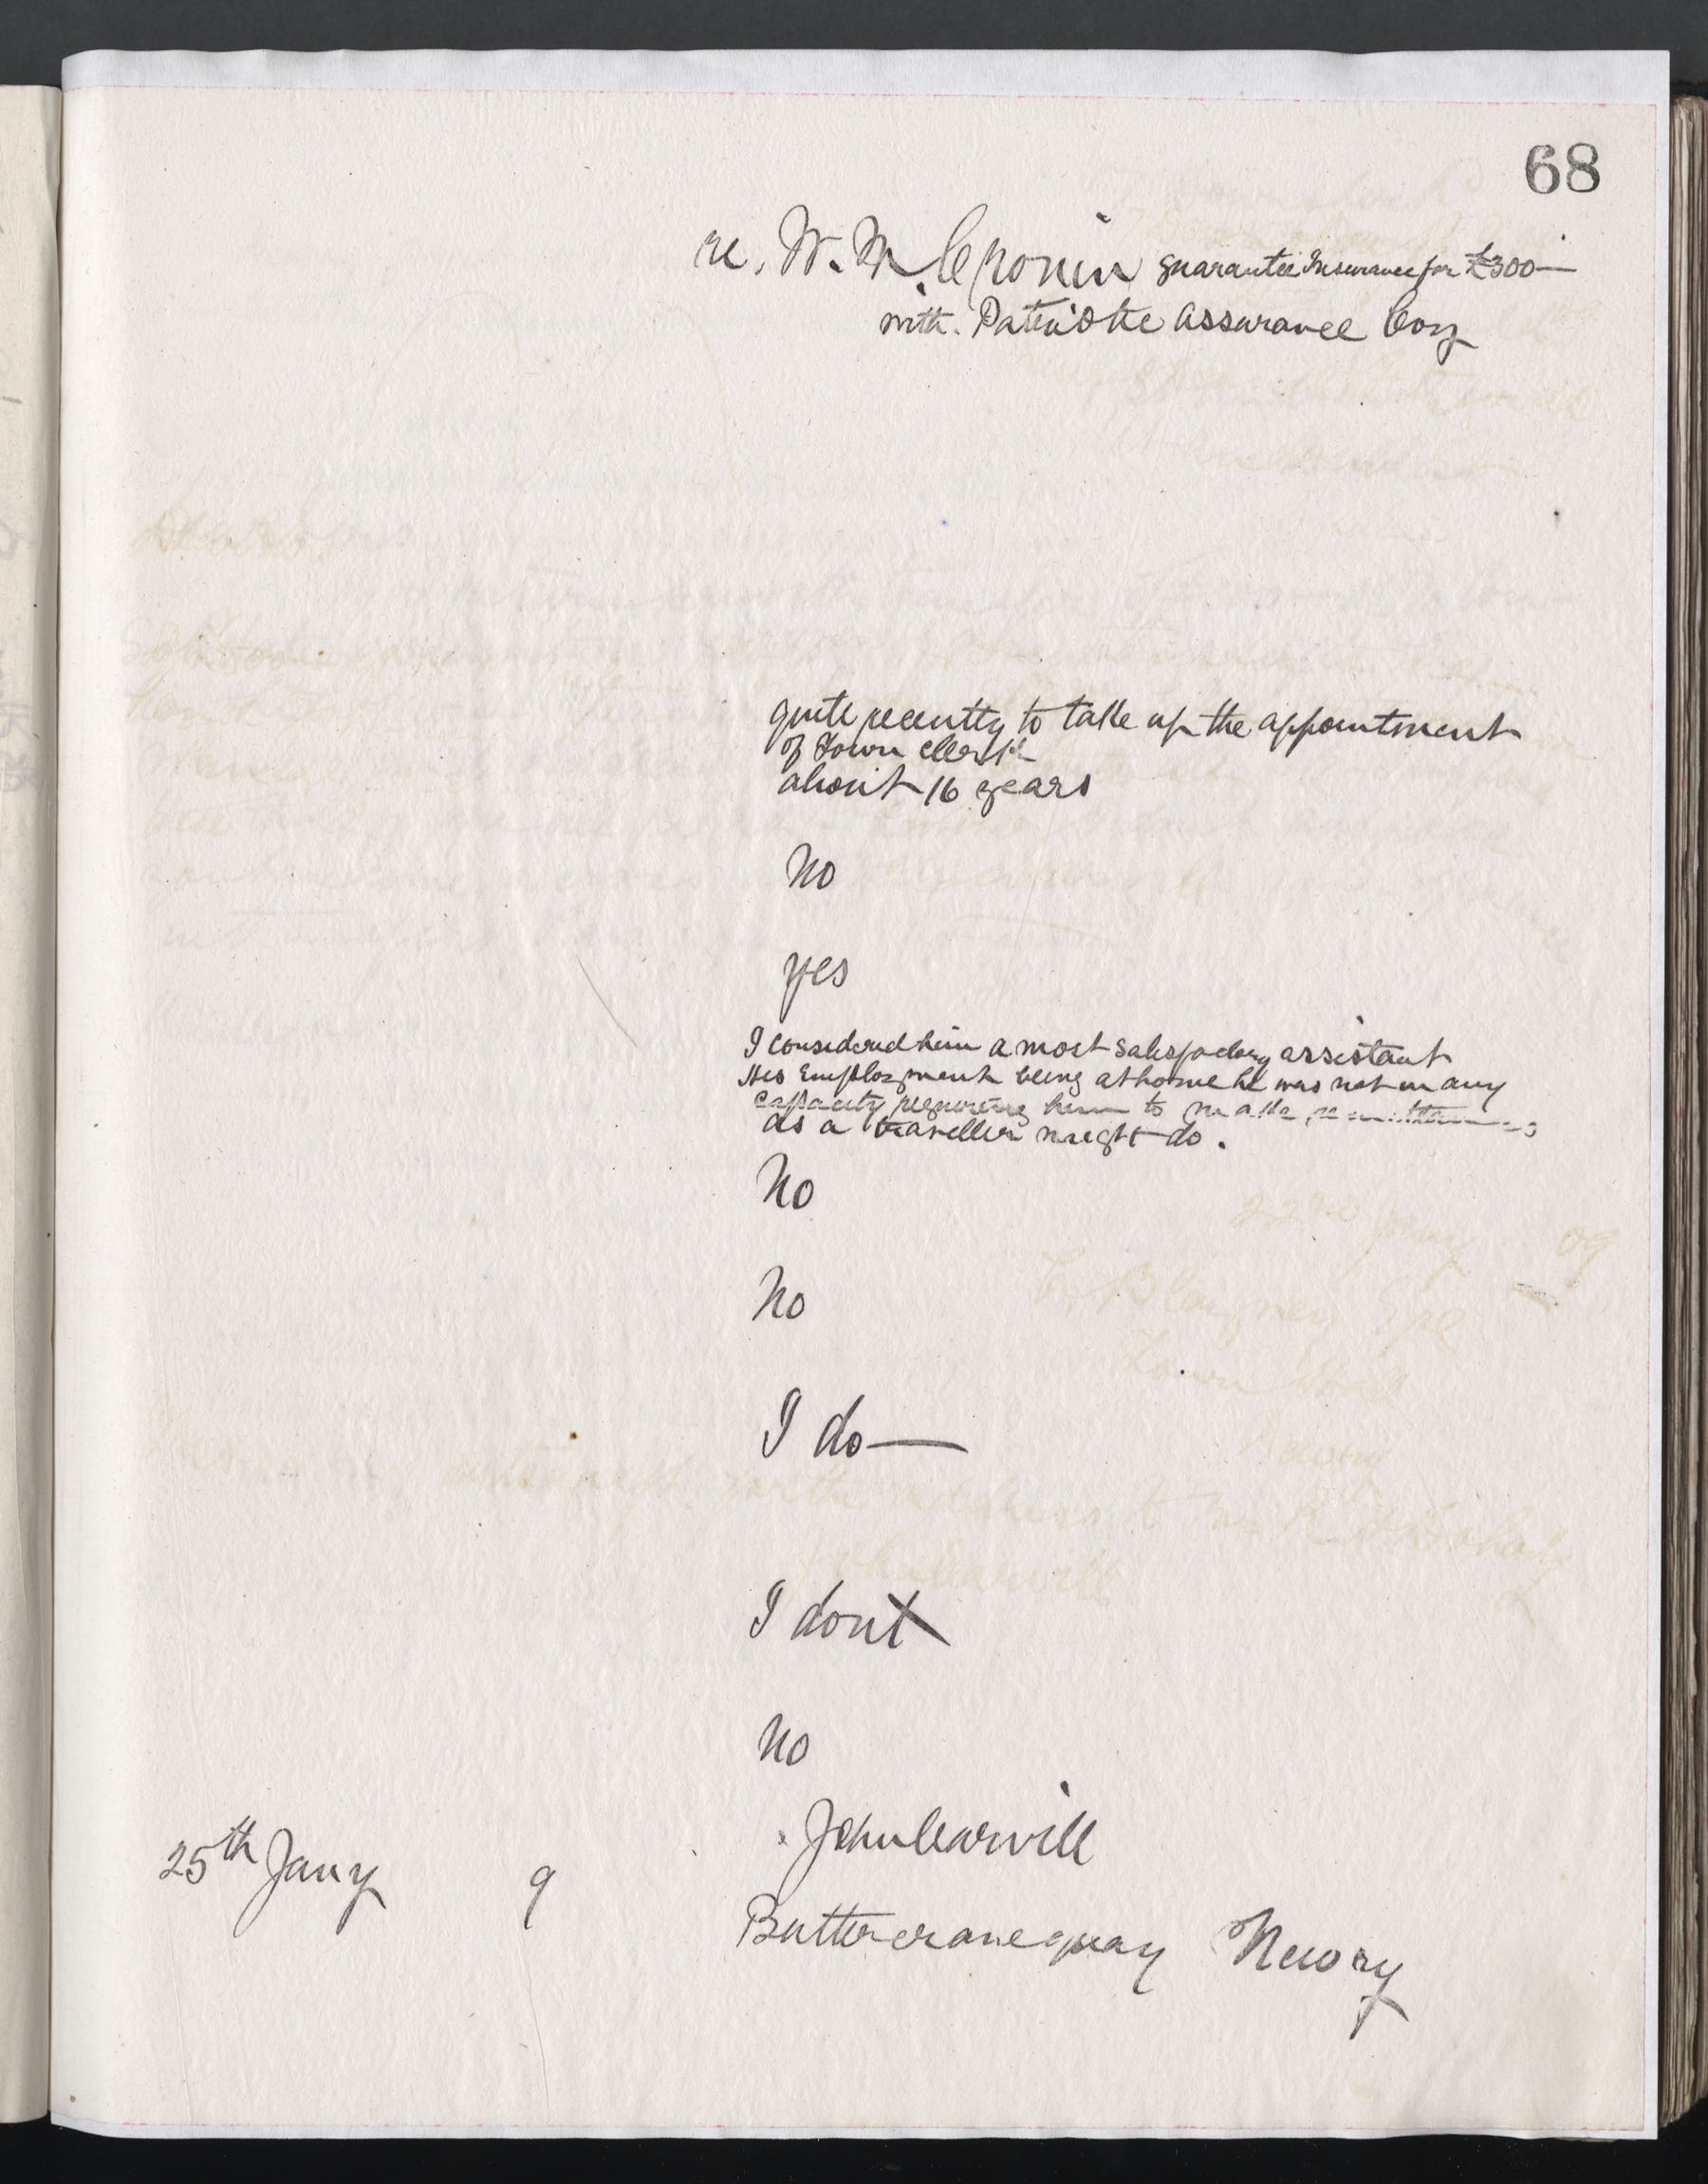 68
re. W. M. Cronin guarantee Insurance for £300—
with. Patriotic Assurance Coy
quite recently to take up the appointment
of Town Clerk
about 16 years
No
yes
I considered him a most satisfactory assistant
His Employment being at home he was not in any
capacity requiring him to make remittances
as a traveller might do.
No
No
I do—
I dont
No
John Carvill
25th Jany 9
Buttercrane quay Newry